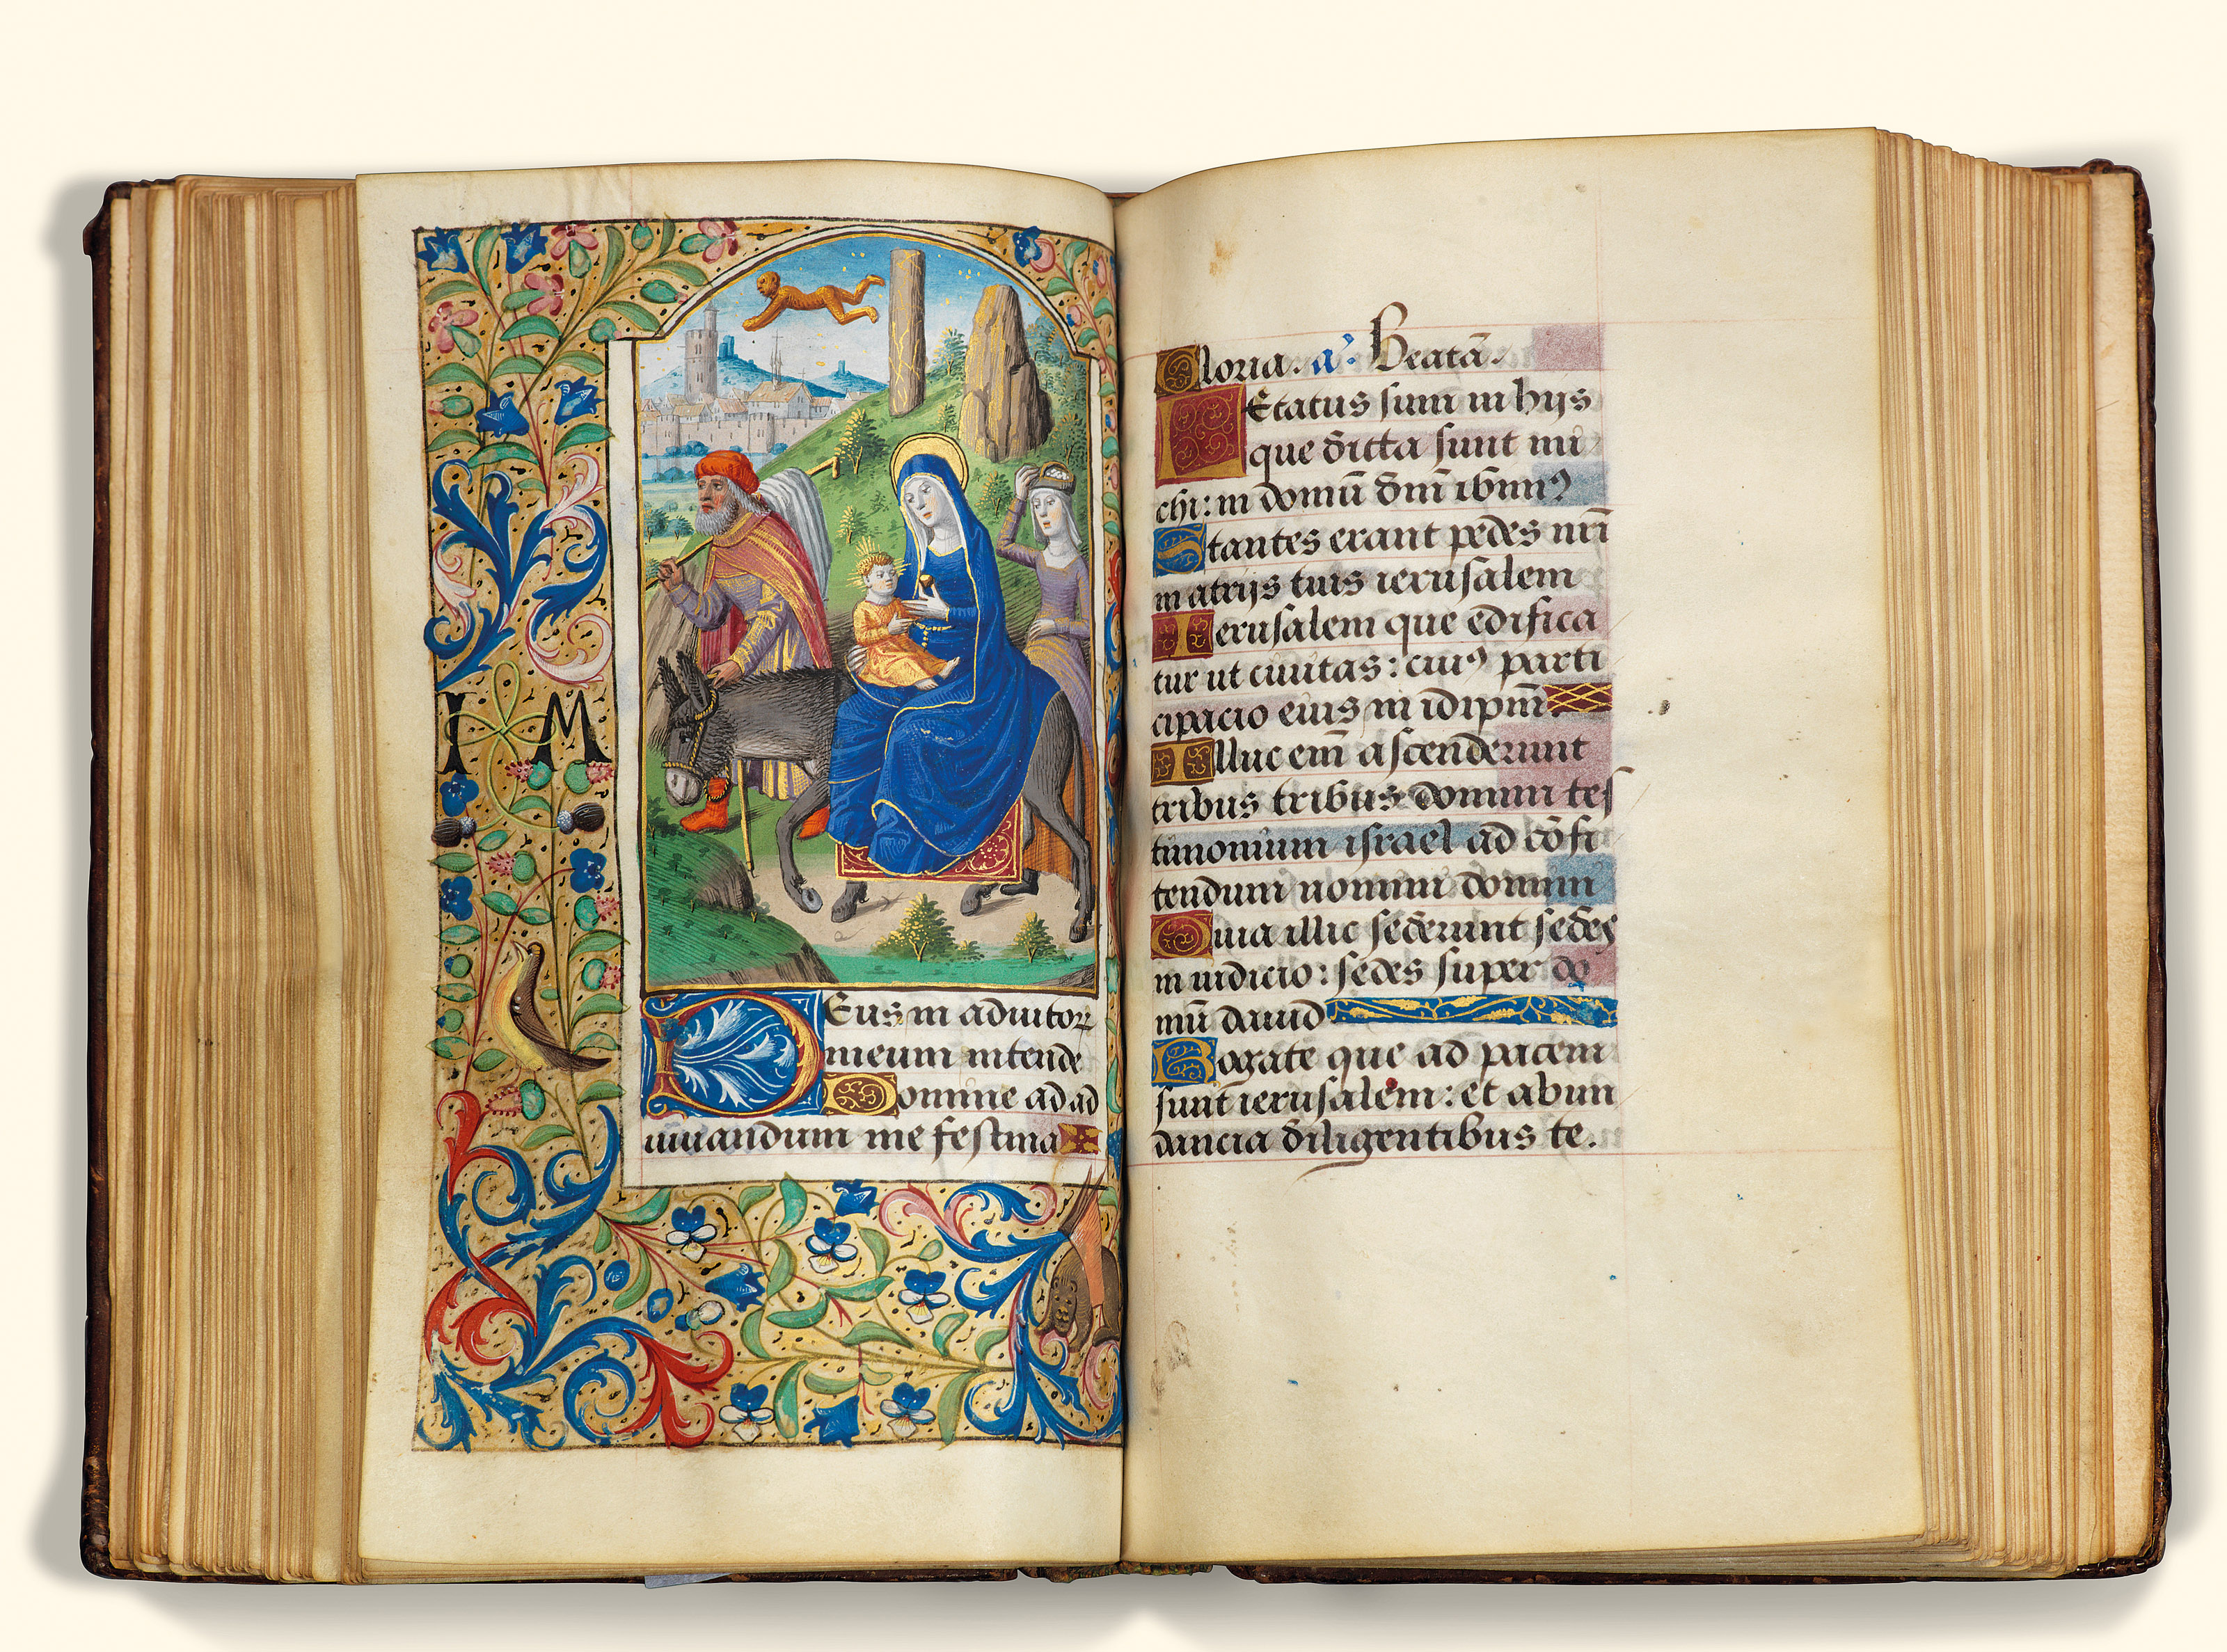 I M
Deus in adiutoꝝ
meum intende
Domine ad ad
iuuandum me festina
Gloria. aˢ. Beatā.
Letatus sum in hijs
que dicta sunt mi
chi: in domū dñi ibimꝰ
Stantes erant pedes nr̄i
in atrijs tuis ierusalem
Ierusalem que edifica
tur ut ciuitas: cuiꝰ parti
cipacio eius in idip̄m
Illuc em̄ ascenderunt
tribus tribus domini tes
timonium israel ad cōfi
tendum nomini domini
Quia illic sederunt sedes
in iudicio: sedes super do
mū dauid
Rogate que ad pacem
sunt ierusalem: et abun
dancia diligentibus te.